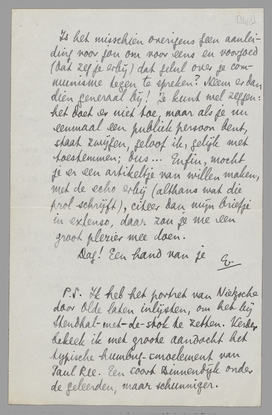 Is het misschien overigens geen aanlei-
ding voor jou om voor eens en voorgoed
(dat zeg je erbij) dat gelul over je com-
munisme tegen te spreken? Neem er dan
dien generaal bij! Je kunt wel zeggen:
het doet er niet toe, maar als je nu
eenmaal een publiek persoon bent,
staat zwijgen, geloof ik, gelijk met
toestemmen; dus... Enfin, mocht
je er een artikeltje van willen maken,
met de echo erbij (althans wat die
prol schrijft), citeer dan mijn briefje
in extenso, daar zou je me een
groot plezier mee doen.
Dag! Een hand van je
E.
P.S. Ik heb het portret van Nietzsche
door Olde laten inlijsten, om het bij
Stendhal-met-de-stok te zetten. Verder
bekeek ik met groote aandacht het
typische humbug-
van
Paul Rée. Een soort Binnendijk onder
de geleerden, maar schunniger.